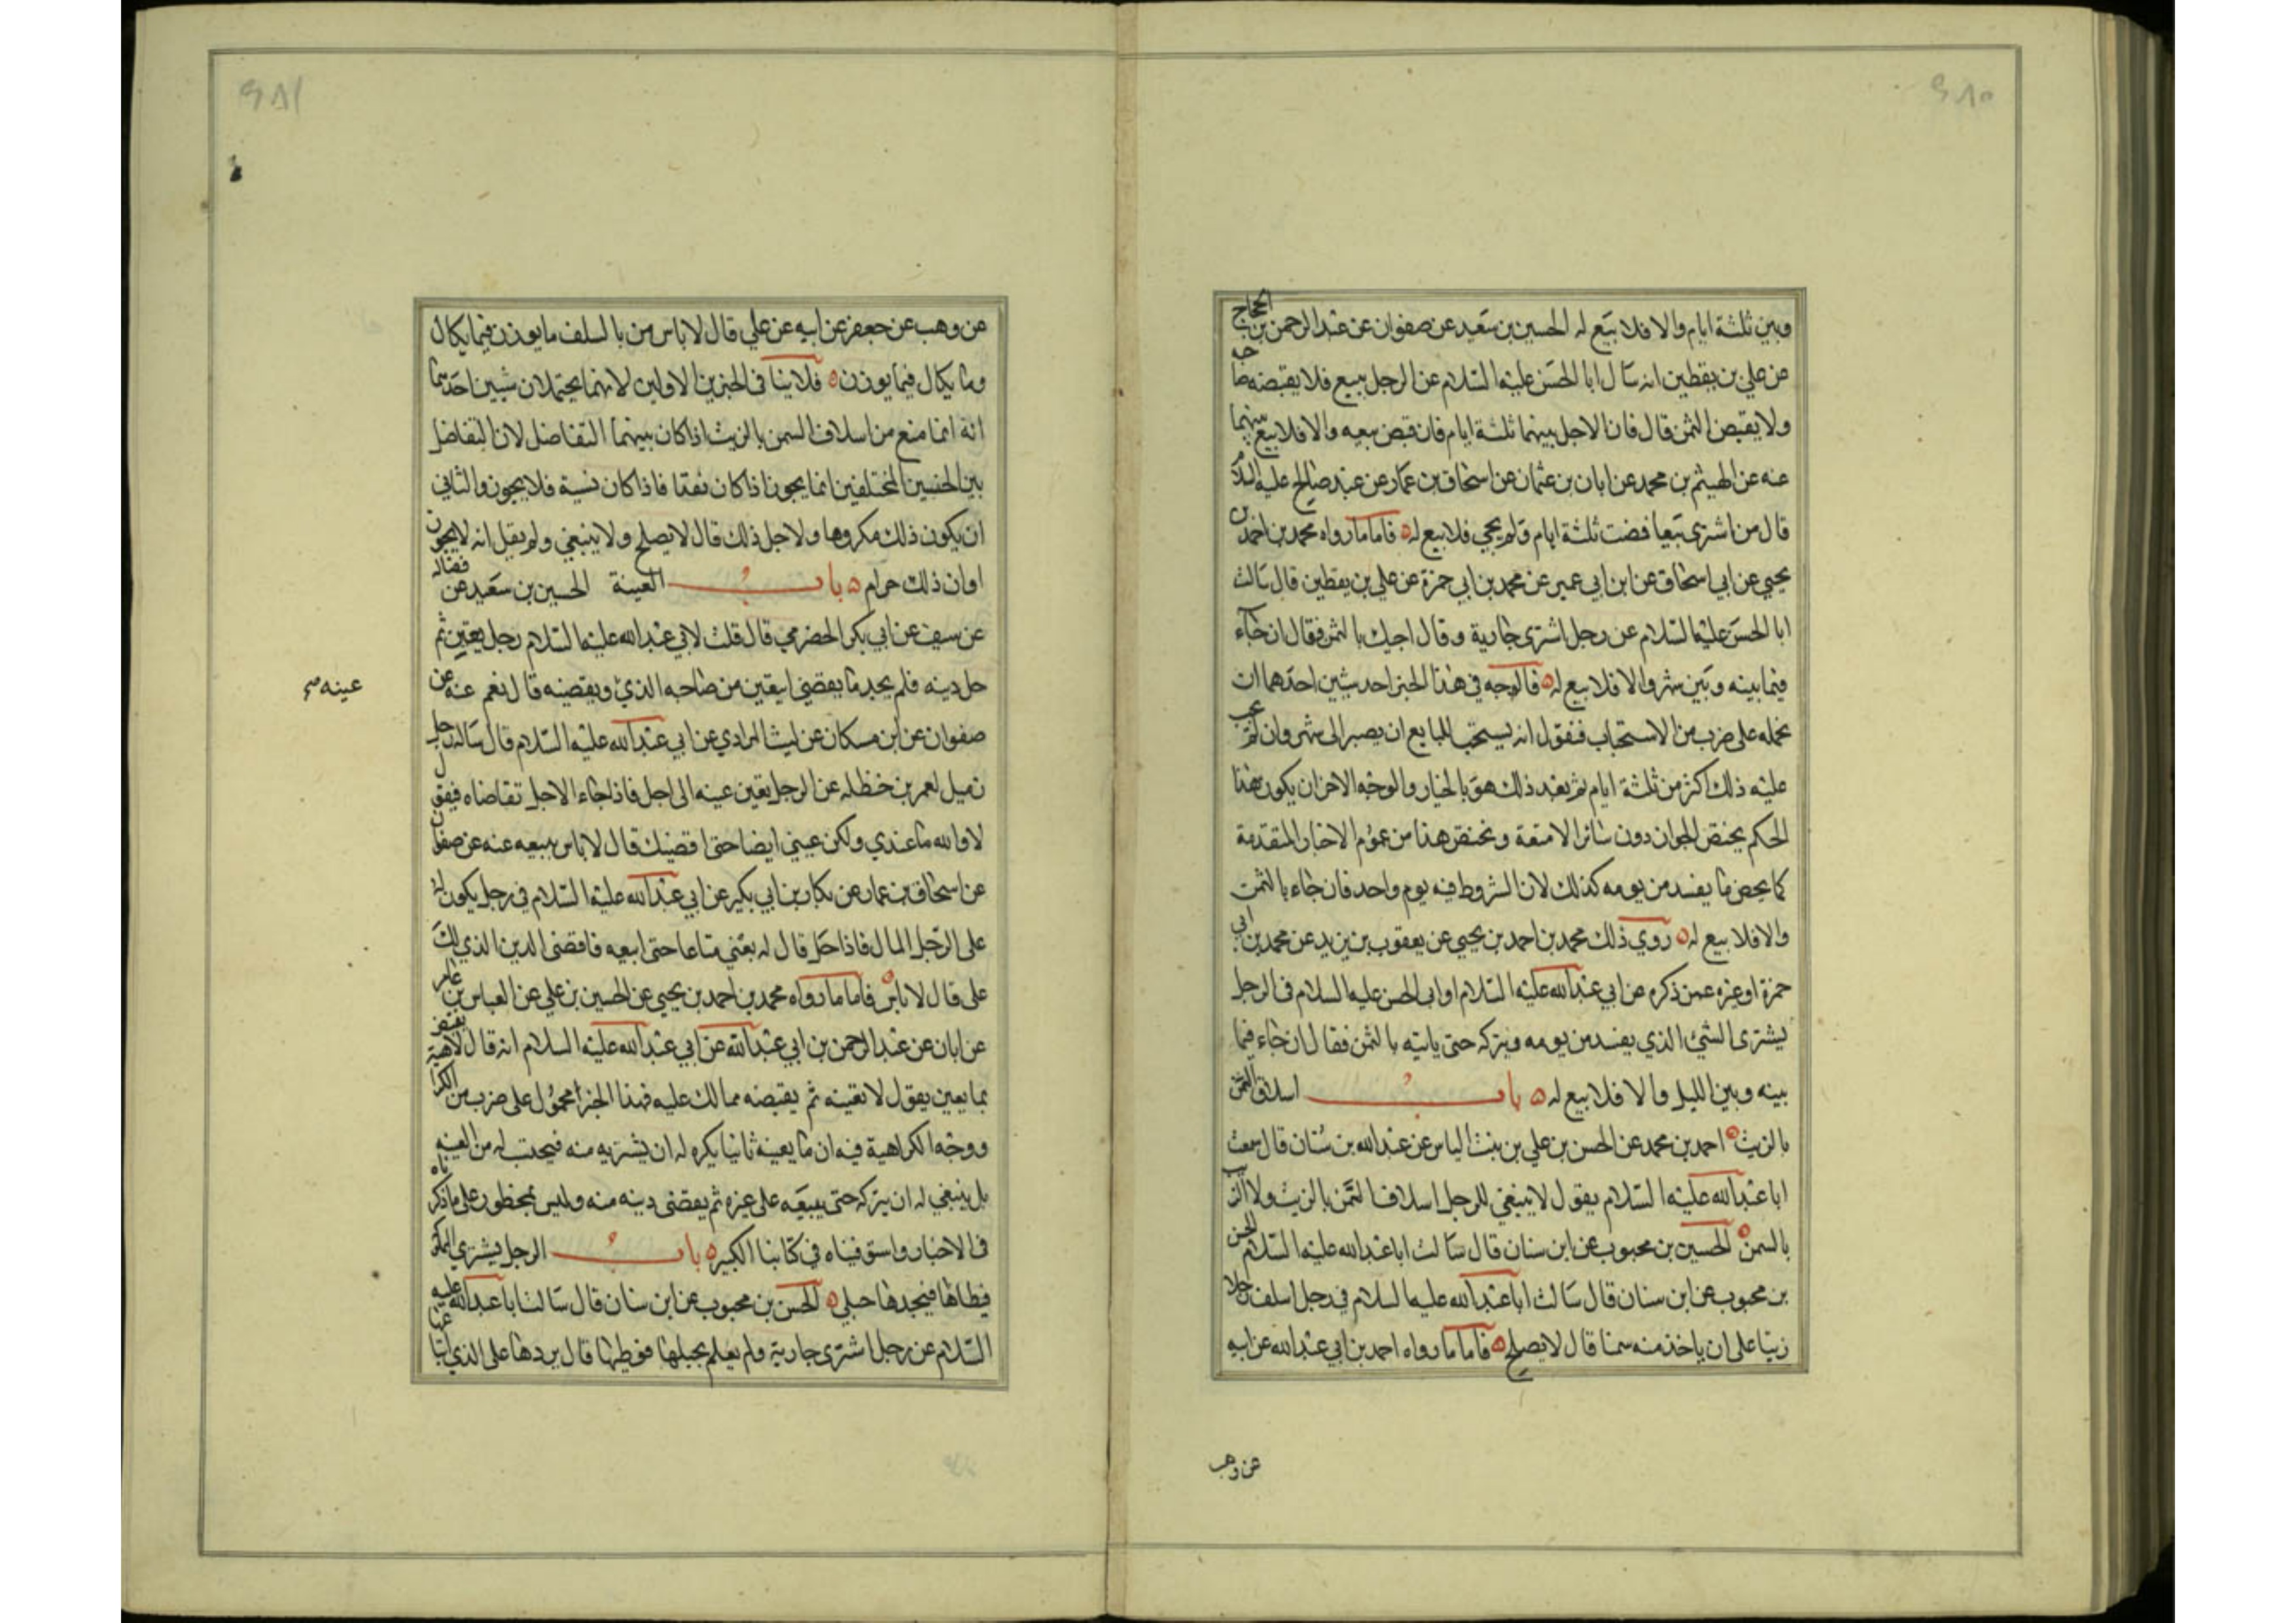 ٩٨٠
وبين ثلثة ايام والا فلا بيع له الحسين بن سعيد عن صفوان عن عبد الرحمن بن الحجاج
عن علي بن يقطين انه سال ابا الحسن عليه السلام عن الرجل يبيع فلا يقبضه صاحبه
ولا يقبض الثمن قال فان الاجل بينهما ثلثة ايام فان قبض بيعه والا فلا بيع بينهما
عنه عن الهيثم بن محمد عن ابان بن عثمان عن اسحاق بن عمار عن عبد صالح عليه السلام
قال من اشترى بيعا فمضت ثلثة ايام ولم يجئ فلا بيع له فاما ما رواه محمد بن احمد بن
يحيي عن ابي اسحاق عن ابن ابي عمير عن محمد بن ابي حمزة عن علي بن يقطين قال سالت
ابا الحسن عليه السلام عن رجل اشترى جارية وقال اجيك بالثمن فقال ان جاء
فيما بينه وبين شهر والا فلا بيع له فالوجه في هذا الخبر احد شيئين احدهما ان
نحمله على ضرب من الاستحباب فنقول انه يستحب للبايع ان يصبر الى شهر وان لم يجب
عليه ذلك اكثر من ثلثة ايام ثم بعد ذلك هو بالخيار والوجه الاخر ان يكون هذا
الحكم يختص الجوار دون سائر الامتعة ونخص هذا من عموم الاخبار المتقدمة
كما يخص ما يفسد من يومه كذلك لان الشروط فيه يوم واحد فان جاء بالثمن
والا فلا بيع له روي ذلك محمد بن احمد بن يحيي عن يعقوب بن يزيد عن محمد بن ابي
حمزة او غيره عمن ذكره عن ابي عبد الله عليه السلام او ابي الحسن عليه السلام في الرجل
يشترى الشئ الذي يفسد من يومه ويتركه حتى ياتيه بالثمن فقال ان جاء فيما
بينه وبين الليل والا فلا بيع له باب اسلاف السمن
بالزيت احمد بن محمد عن الحسن بن علي بن بنت الياس عن عبد الله بن سنان قال سمعت
ابا عبد الله عليه السلام يقول لا ينبغي للرجل اسلاف السمن بالزيت ولا الزيت
بالسمن الحسين بن محبوب عن ابن سنان قال سالت ابا عبد الله عليه السلام الحسن
بن محبوب عن ابن سنان قال سالت ابا عبد الله عليه السلام في رجل اسلف رجلا
زيتا على ان ياخذ منه سمنا قال لا يصلح فاما ما رواه احمد بن ابي عبد الله عن ابيه
عن وهب
٩٨١
عن وهب عن جعفر عن ابيه عن علي قال لا باس من بالسلف ما يوزن فيما يكال
وما يكال فيما يوزن فلا ينافى الخبرين الاولين لانهما يحتملان شيئين احدهما
انه انما منع من اسلاف السمن بالزيت اذا كان بينهما التفاضل لان التفاضل
بين الجنسين المختلفين انما يجوز اذا كان نقدا فاذا كان نسية فلا يجوز والثاني
ان يكون ذلك مكروها ولاجل ذلك قال لا يصلح ولا ينبغي ولم يقل انه لا يجوز
او ان ذلك حرام باب العينة الحسين بن سعيد عن فضالة
عن سيف عن ابي بكر الحضرمي قال قلت لابي عبد الله عليه السلام رجل يعتين ثم
حل دينه فلم يجد ما يقضي ايتعين من صاحبه الذي ويقضيه قال نعم عنه عن
عينه صح
صفوان عن ابن مسكان عن ليث المرادي عن ابي عبد الله عليه السلام قال ساله رجل
زميل لعمر بن حنظله عن الرجل يعين عينه الى اجل فاذا جاء الاجل تقاضاه فيقول
لا والله ما عندي ولكن عيني ايضا حتى اقضيك قال لا باس ببيعه عنه عن صفوان
عن اسحاق بن عمار عن بكار بن ابي بكير عن ابي عبد الله عليه السلام في رجل يكون له
على الرجل المال فاذا حل قال له بعني متاعا حتى ابيعه فاقضى الدين الذي لك
على قال لا باس فاما ما رواه محمد بن احمد بن يحيي عن الحسين بن علي عن العباس بن عامر
عن ابان عن عبد الرحمن بن ابي عبد الله عن ابي عبد الله عليه السلام انه قال لا
بما يعين يقول لا تعينه ثم يقبضه مما لك عليه فهذا الخبر محمول على ضرب من الكراهية
ووجه الكراهية فيه ان ما يعينه ثانيا يكره له ان يشتريه منه فيحتسب له من العينه
بل ينبغي له ان يتركه حتى يبيعه على غيره ثم يقضى دينه منه وليس بمحظور على ما ذكرناه
في الاخبار واستوفيناه في كتابنا الكبير باب الرجل يشتري المملوكة
فيطاها فيجدها حبلي الحسن بن محبوب عن ابن سنان قال سالت ابا عبد الله عليه
السلام عن رجل اشترى جارية ولم يعلم بحبلها فوطيها قال يردها على الذي ابتاعها